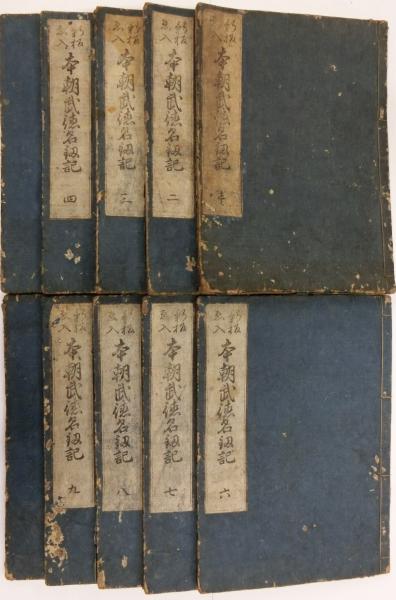 新板
ゑ入
本朝武徳名釼記
新板
ゑ入
本朝武徳名釼記
二
新板
ゑ入
本朝武徳名釼記
三
新板
ゑ入
本朝武徳名釼記
四
新板
ゑ入
本朝武徳名釼記
六
新板
ゑ入
本朝武徳名釼記
七
新板
ゑ入
本朝武徳名釼記
八
新板
ゑ入
本朝武徳名釼記
九